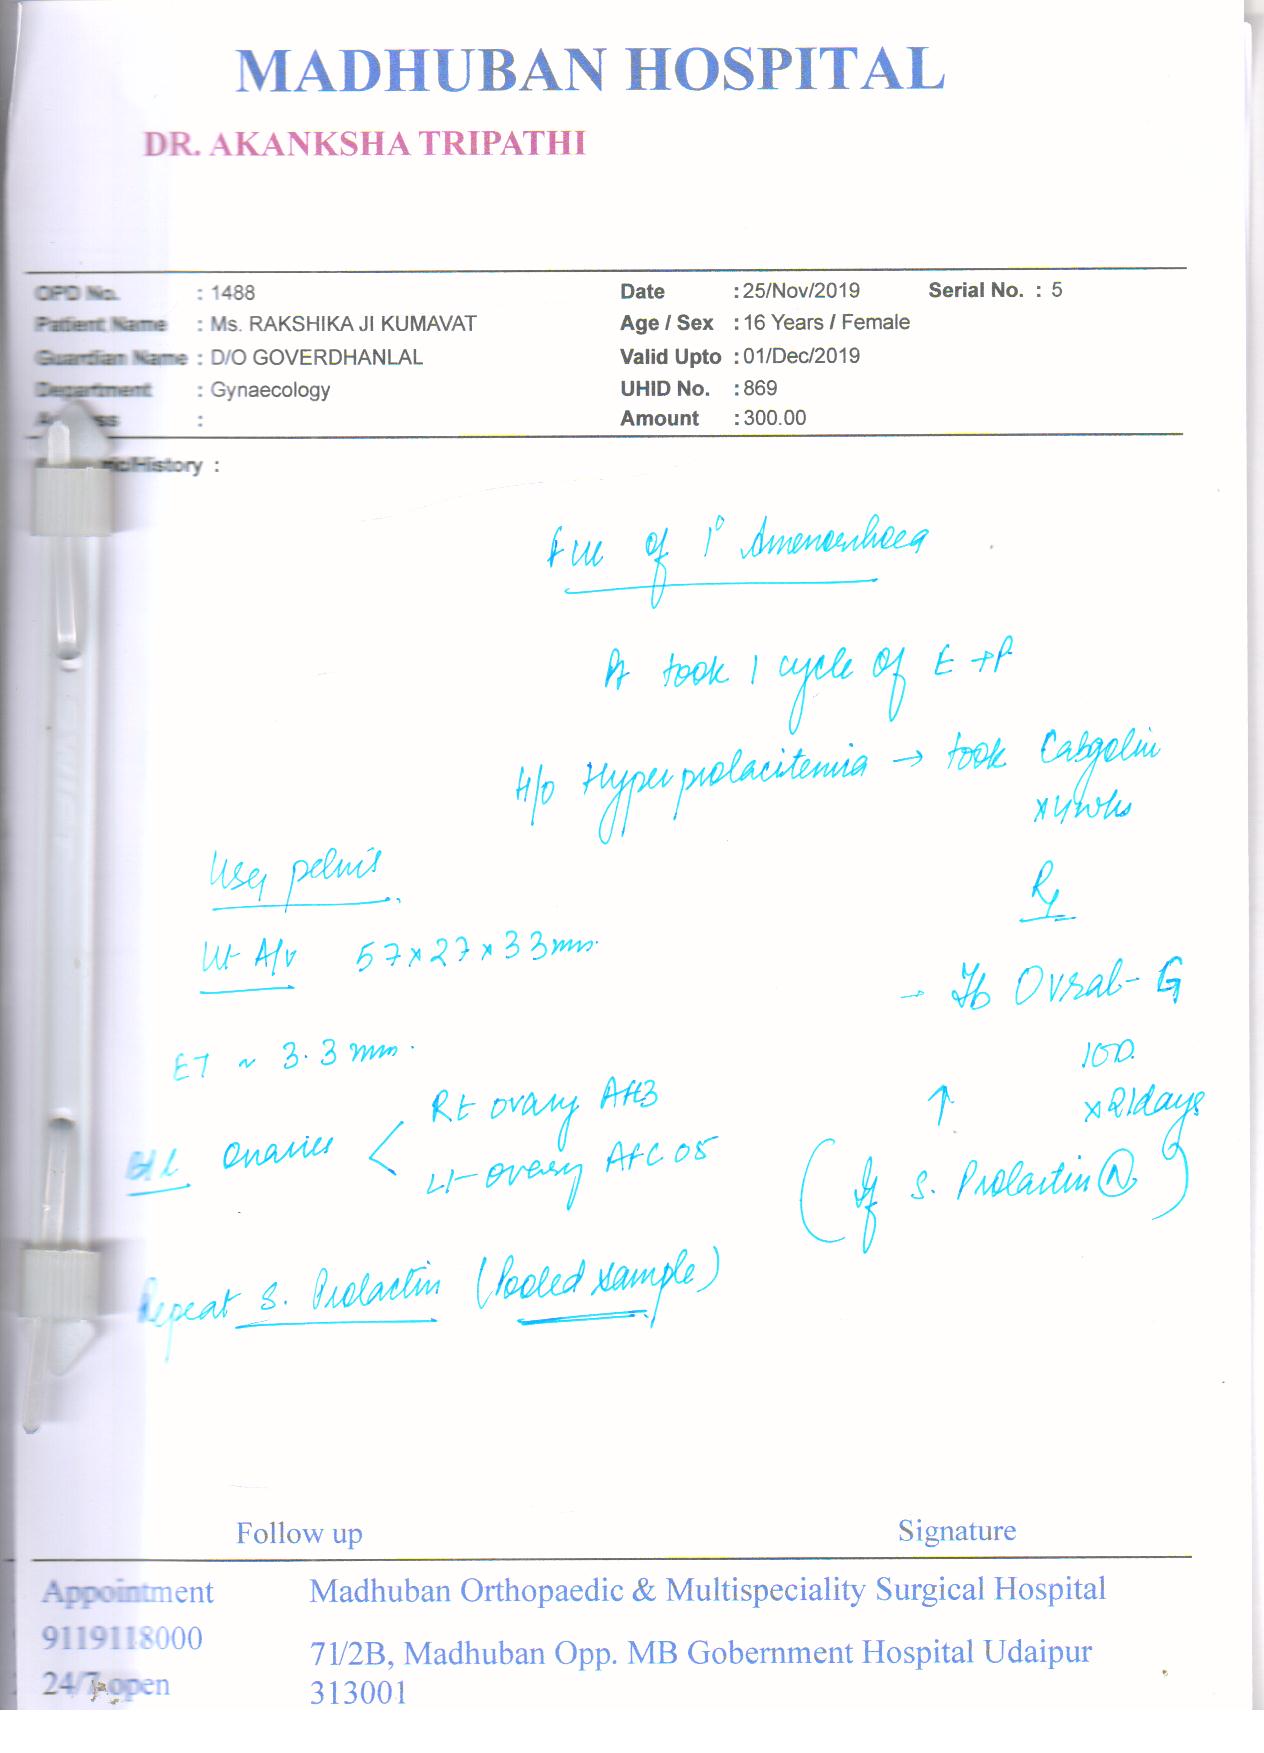 MADHUBAN HOSPITAL
DR. AKANKSHA TRIPATHI
OPD No. : 1488 Date : 25/Nov/2019 Serial No. : 5
Patient Name : Ms. RAKSHIKA JI KUMAVAT Age / Sex : 16 Years / Female
Guardian Name : D/O GOVERDHANLAL Valid Upto : 01/Dec/2019
Department : Gynaecology UHID No. : 869
: Amount : 300.00
/History :
of 1° Amenorrhoea
Pt took 1 cycle of E+P
H/o Hyperprolacitemia → took Cabgolin
x 4 wks
USG pelvis
Rx
Ut A/v 57 x 27 x 33 mm.
→ Tb Ovral-G
ET ~ 3.3 mm.
1 OD
x 21 days
↑
B/L ovaries < Rt ovary
Lt ovary AFC 05
(If S. Prolactin N)
Repeat S. Prolactin (Pooled sample)
Follow up Signature
Appointment
9119118000
24/7 open
Madhuban Orthopaedic & Multispeciality Surgical Hospital
71/2B, Madhuban Opp. MB Gobernment Hospital Udaipur
313001